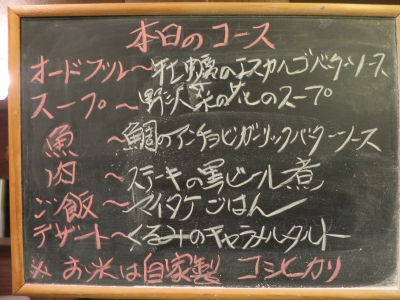 本日のコース
オードブル〜牡蠣のエスカルゴバターソース
スープ〜野沢菜の花のスープ
魚〜鯛のアンチョビガーリックバターソース
肉〜ステーキの黒ビール煮
ご飯〜マイタケごはん
デザート〜くるみのキャラメルタルト
※お米は自家製 コシヒカリ